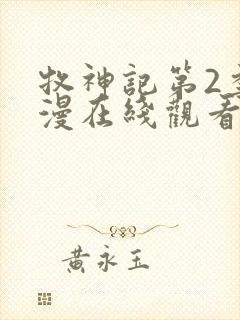 牧神記第2
漫在綫觀看
黃永玉